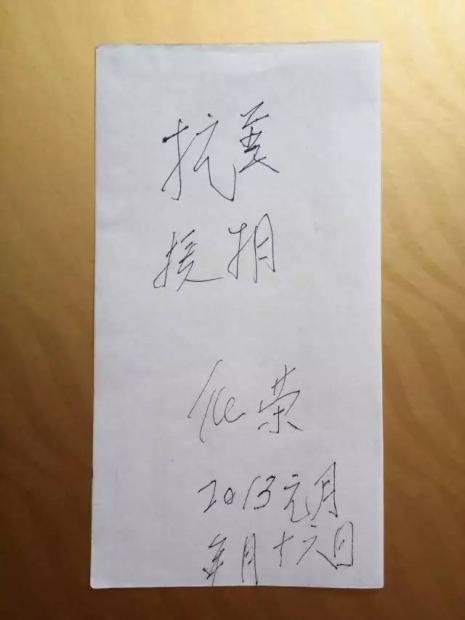 抗美
援朝
荣
2013元月
年月十六日